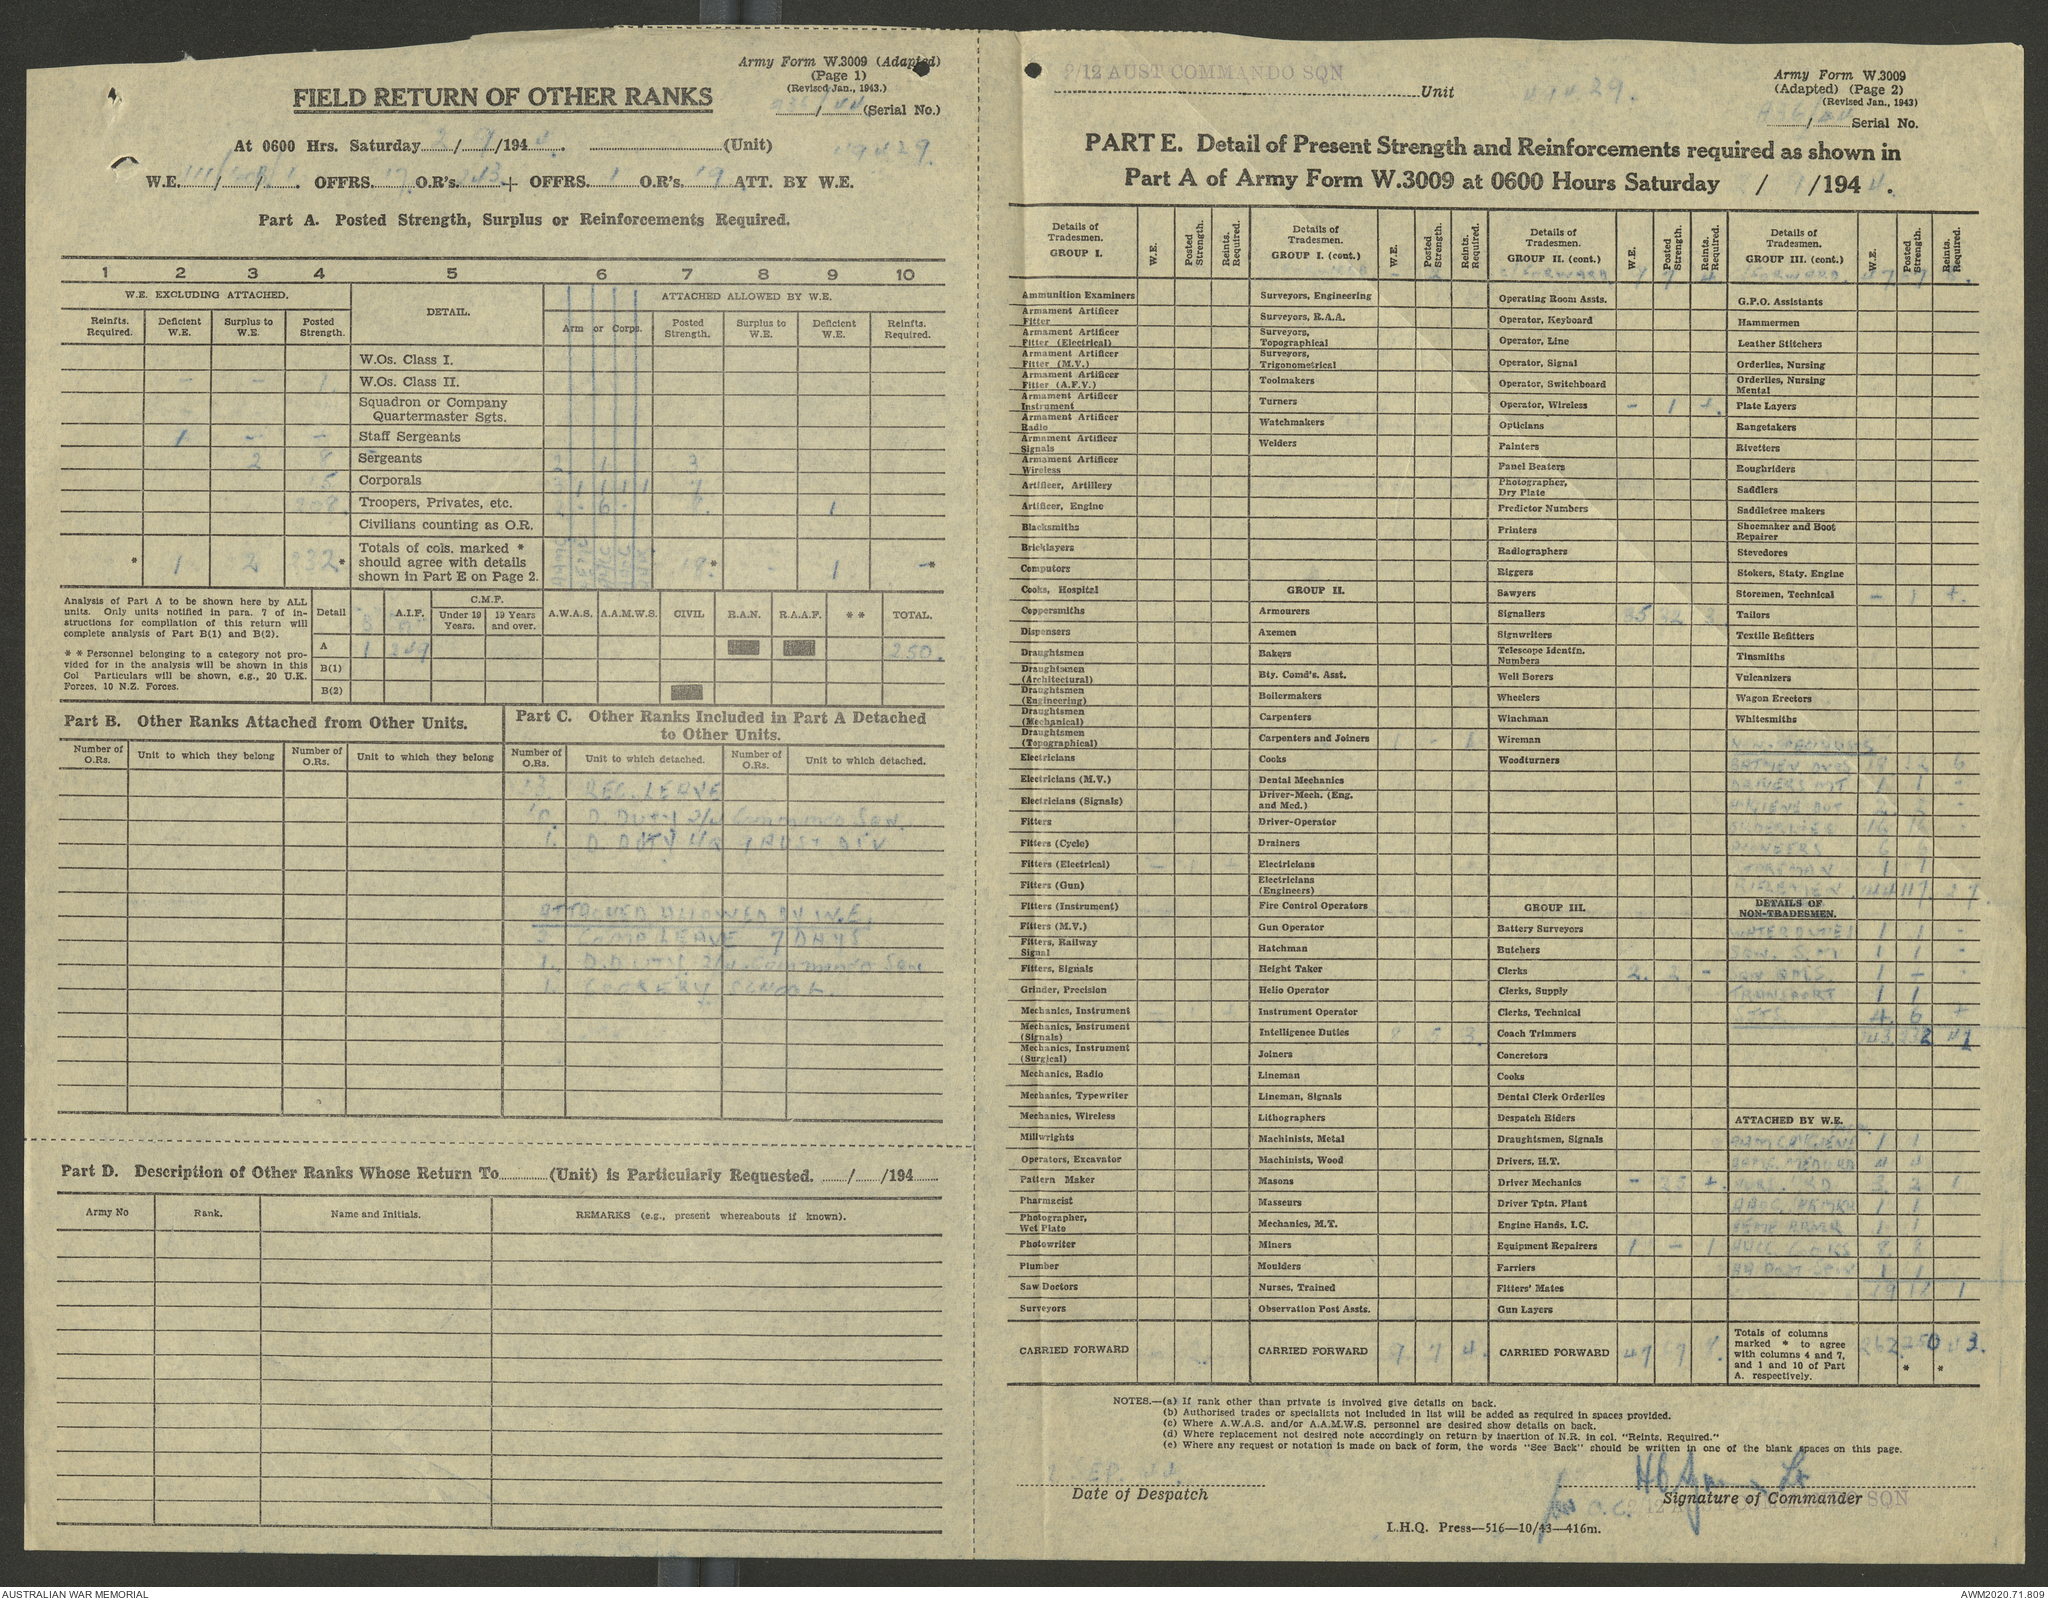 Army Form W.3009 (Adapted)
(Page 1)
(Revised Jan., 1943.)
FIELD RETURN OF OTHER RANKS
/44 (Serial No.)
At 0600 Hrs. Saturday 2/9/1944. (Unit) 49429.
W.E. 111/ / . OFFRS. 17 O.R's. 243 + OFFRS. 1 O.R's. 19 ATT. BY W.E.
Part A. Posted Strength, Surplus or Reinforcements Required.
1 2 3 4 5 6 7 8 9 10
W.E. EXCLUDING ATTACHED. DETAIL. ATTACHED ALLOWED BY W.E.
Reinfts. Required. Deficient W.E. Surplus to W.E. Posted Strength. Arm or Corps. W.E. Posted Strength. Surplus to W.E. Deficient W.E. Reinfts. Required.
W.Os. Class I.
- - 1 W.Os. Class II.
Squadron or Company Quartermaster Sgts.
1 - - Staff Sergeants
2 8 Sergeants 2 1 3
15 Corporals 3 1 1 1 1 7
208. Troopers, Privates, etc. 6 8. 1
Civilians counting as O.R.
* 1 2 232* Totals of cols. marked * should agree with details shown in Part E on Page 2. 18.* - 1 -*
Analysis of Part A to be shown here by ALL units. Only units notified in para. 7 of instructions for compilation of this return will complete analysis of Part B(1) and B(2).
* * Personnel belonging to a category not provided for in the analysis will be shown in this Col Particulars will be shown, e.g., 20 U.K. Forces, 10 N.Z. Forces.
Detail A.I.F. C.M.F. Under 19 Years. 19 Years and over. A.W.A.S. A.A.M.W.S. CIVIL R.A.N. R.A.A.F. * * TOTAL.
A 1 249 250.
B(1)
B(2)
Part B. Other Ranks Attached from Other Units.
Number of O.Rs. Unit to which they belong Number of O.Rs. Unit to which they belong
Part C. Other Ranks Included in Part A Detached to Other Units.
Number of O.Rs. Unit to which detached. Number of O.Rs. Unit to which detached.
REC. LEAVE
D. DUTY 2/4 Commando Sqn.
1. D. DUTY H/Q 1 AUST. DIV
ATTACHED ALLOWED BY W.E.
COMP LEAVE 7 DAYS
1. D. DUTY 2/4 Commando Sqn
1. COOKERY SCHOOL.
Part D. Description of Other Ranks Whose Return To (Unit) is Particularly Requested. / /194
Army No Rank. Name and Initials. REMARKS (e.g., present whereabouts if known).
2/12 AUST COMMANDO SQN Unit 49429.
Army Form W.3009
(Adapted) (Page 2)
(Revised Jan., 1943)
/44 Serial No.
PART E. Detail of Present Strength and Reinforcements required as shown in
Part A of Army Form W.3009 at 0600 Hours Saturday / 9 /1944.
Details of Tradesmen. GROUP I. W.E. Posted Strength. Reints. Required.
Ammunition Examiners
Armament Artificer Fitter
Armament Artificer Fitter (Electrical)
Armament Artificer Fitter (M.V.)
Armament Artificer Fitter (A.F.V.)
Armament Artificer Instrument
Armament Artificer Radio
Armament Artificer Signals
Armament Artificer Wireless
Artificer, Artillery
Artificer, Engine
Blacksmiths
Bricklayers
Computors
Cooks, Hospital
Coppersmiths
Dispensers
Draughtsmen
Draughtsmen (Architectural)
Draughtsmen (Engineering)
Draughtsmen (Mechanical)
Draughtsmen (Topographical)
Electricians
Electricians (M.V.)
Electricians (Signals)
Fitters
Fitters (Cycle)
Fitters (Electrical) - 1 +
Fitters (Gun)
Fitters (Instrument)
Fitters (M.V.)
Fitters, Railway Signal
Fitters, Signals
Grinder, Precision
Mechanics, Instrument - 1 +
Mechanics, Instrument (Signals)
Mechanics, Instrument (Surgical)
Mechanics, Radio
Mechanics, Typewriter
Mechanics, Wireless
Millwrights
Operators, Excavator
Pattern Maker
Pharmacist
Photographer, Wet Plate
Photowriter
Plumber
Saw Doctors
Surveyors
CARRIED FORWARD
Details of Tradesmen. GROUP I. (cont.) W.E. Posted Strength. Reints. Required.
- 2
Surveyors, Engineering
Surveyors, R.A.A.
Surveyors, Topographical
Surveyors, Trigonometrical
Toolmakers
Turners
Watchmakers
Welders
GROUP II.
Armourers
Axemen
Bakers
Bty. Comd's. Asst.
Boilermakers
Carpenters
Carpenters and Joiners 1 - 1
Cooks
Dental Mechanics
Driver-Mech. (Eng. and Med.)
Driver-Operator
Drainers
Electricians
Electricians (Engineers)
Fire Control Operators
Gun Operator
Hatchman
Height Taker
Helio Operator
Instrument Operator
Intelligence Duties 8 5 3.
Joiners
Lineman
Lineman, Signals
Lithographers
Machinists, Metal
Machinists, Wood
Masons
Masseurs
Mechanics, M.T.
Miners
Moulders
Nurses, Trained
Observation Post Assts.
CARRIED FORWARD 9. 7 4.
Details of Tradesmen. GROUP II. (cont.) W.E. Posted Strength. Reints. Required.
C/FORWARD 9 7 4
Operating Room Assts.
Operator, Keyboard
Operator, Line
Operator, Signal
Operator, Switchboard
Operator, Wireless - 1 +.
Opticians
Painters
Panel Beaters
Photographer, Dry Plate
Predictor Numbers
Printers
Radiographers
Riggers
Sawyers
Signallers 35 32 3.
Signwriters
Telescope Identfn. Numbers
Well Borers
Wheelers
Winchman
Wireman
Woodturners
GROUP III.
Battery Surveyors
Butchers
Clerks 2. 2 -
Clerks, Supply
Clerks, Technical
Coach Trimmers
Concretors
Cooks
Dental Clerk Orderlies
Despatch Riders
Draughtsmen, Signals
Drivers, H.T.
Driver Mechanics - 25 +.
Driver Tptn. Plant
Engine Hands. I.C.
Equipment Repairers 1. - 1
Farriers
Fitters' Mates
Gun Layers
CARRIED FORWARD 47 67 8.
Details of Tradesmen. GROUP III. (cont.) W.E. Posted Strength. Reints Required.
C/FORWARD 47 67 8.
G.P.O. Assistants
Hammermen
Leather Stitchers
Orderlies, Nursing
Orderlies, Nursing Mental
Plate Layers
Rangetakers
Rivetters
Roughriders
Saddlers
Saddletree makers
Shoemaker and Boot Repairer
Stevedores
Stokers, Staty. Engine
Storemen, Technical - 1 +.
Tailors
Textile Refitters
Tinsmiths
Vulcanizers
Wagon Erectors
Whitesmiths
BATMEN 18 12 6
DRIVERS MT 1 1 -
HYGIENE DUT 2 2 -
16 16 -
PIONEERS 6 6
STOREMAN 1 1
RIFLEMEN 144 117. 27.
DETAILS OF NON-TRADESMEN.
WATER DUTIES 1 1 -
SQN. S.M 1 1 -
SQN QMS. 1 - -
TRANSPORT 1 1
SGTS 4. 6 +
243 232 42
ATTACHED BY W.E.
HYGIENE 1 1
4 4
NURS. ORD. 3. 2 1
1 1
1 1
AACC COOKS 8. 8
1 1
19 18 1
Totals of columns marked * to agree with columns 4 and 7, and 1 and 10 of Part A. respectively. 262 250 * 43. *
NOTES.—(a) If rank other than private is involved give details on back.
(b) Authorised trades or specialists not included in list will be added as required in spaces provided.
(c) Where A.W.A.S. and/or A.A.M.W.S. personnel are desired show details on back.
(d) Where replacement not desired note accordingly on return by insertion of N.R. in col. "Reints. Required."
(e) Where any request or notation is made on back of form, the words "See Back" should be written in one of the blank spaces on this page.
2 SEP. 44.
Date of Despatch
Lt
Signature of Commander
for O.C. 2/12 AUST COMMANDO SQN
L.H.Q. Press—516—10/43—416m.
AUSTRALIAN WAR MEMORIAL
AWM2020.71.809